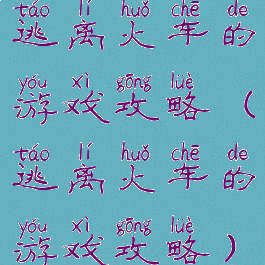 táo lí huǒ chē de
逃离火车的
yóu xì gōng lüè
游戏攻略（
táo lí huǒ chē de
逃离火车的
yóu xì gōng lüè
游戏攻略）